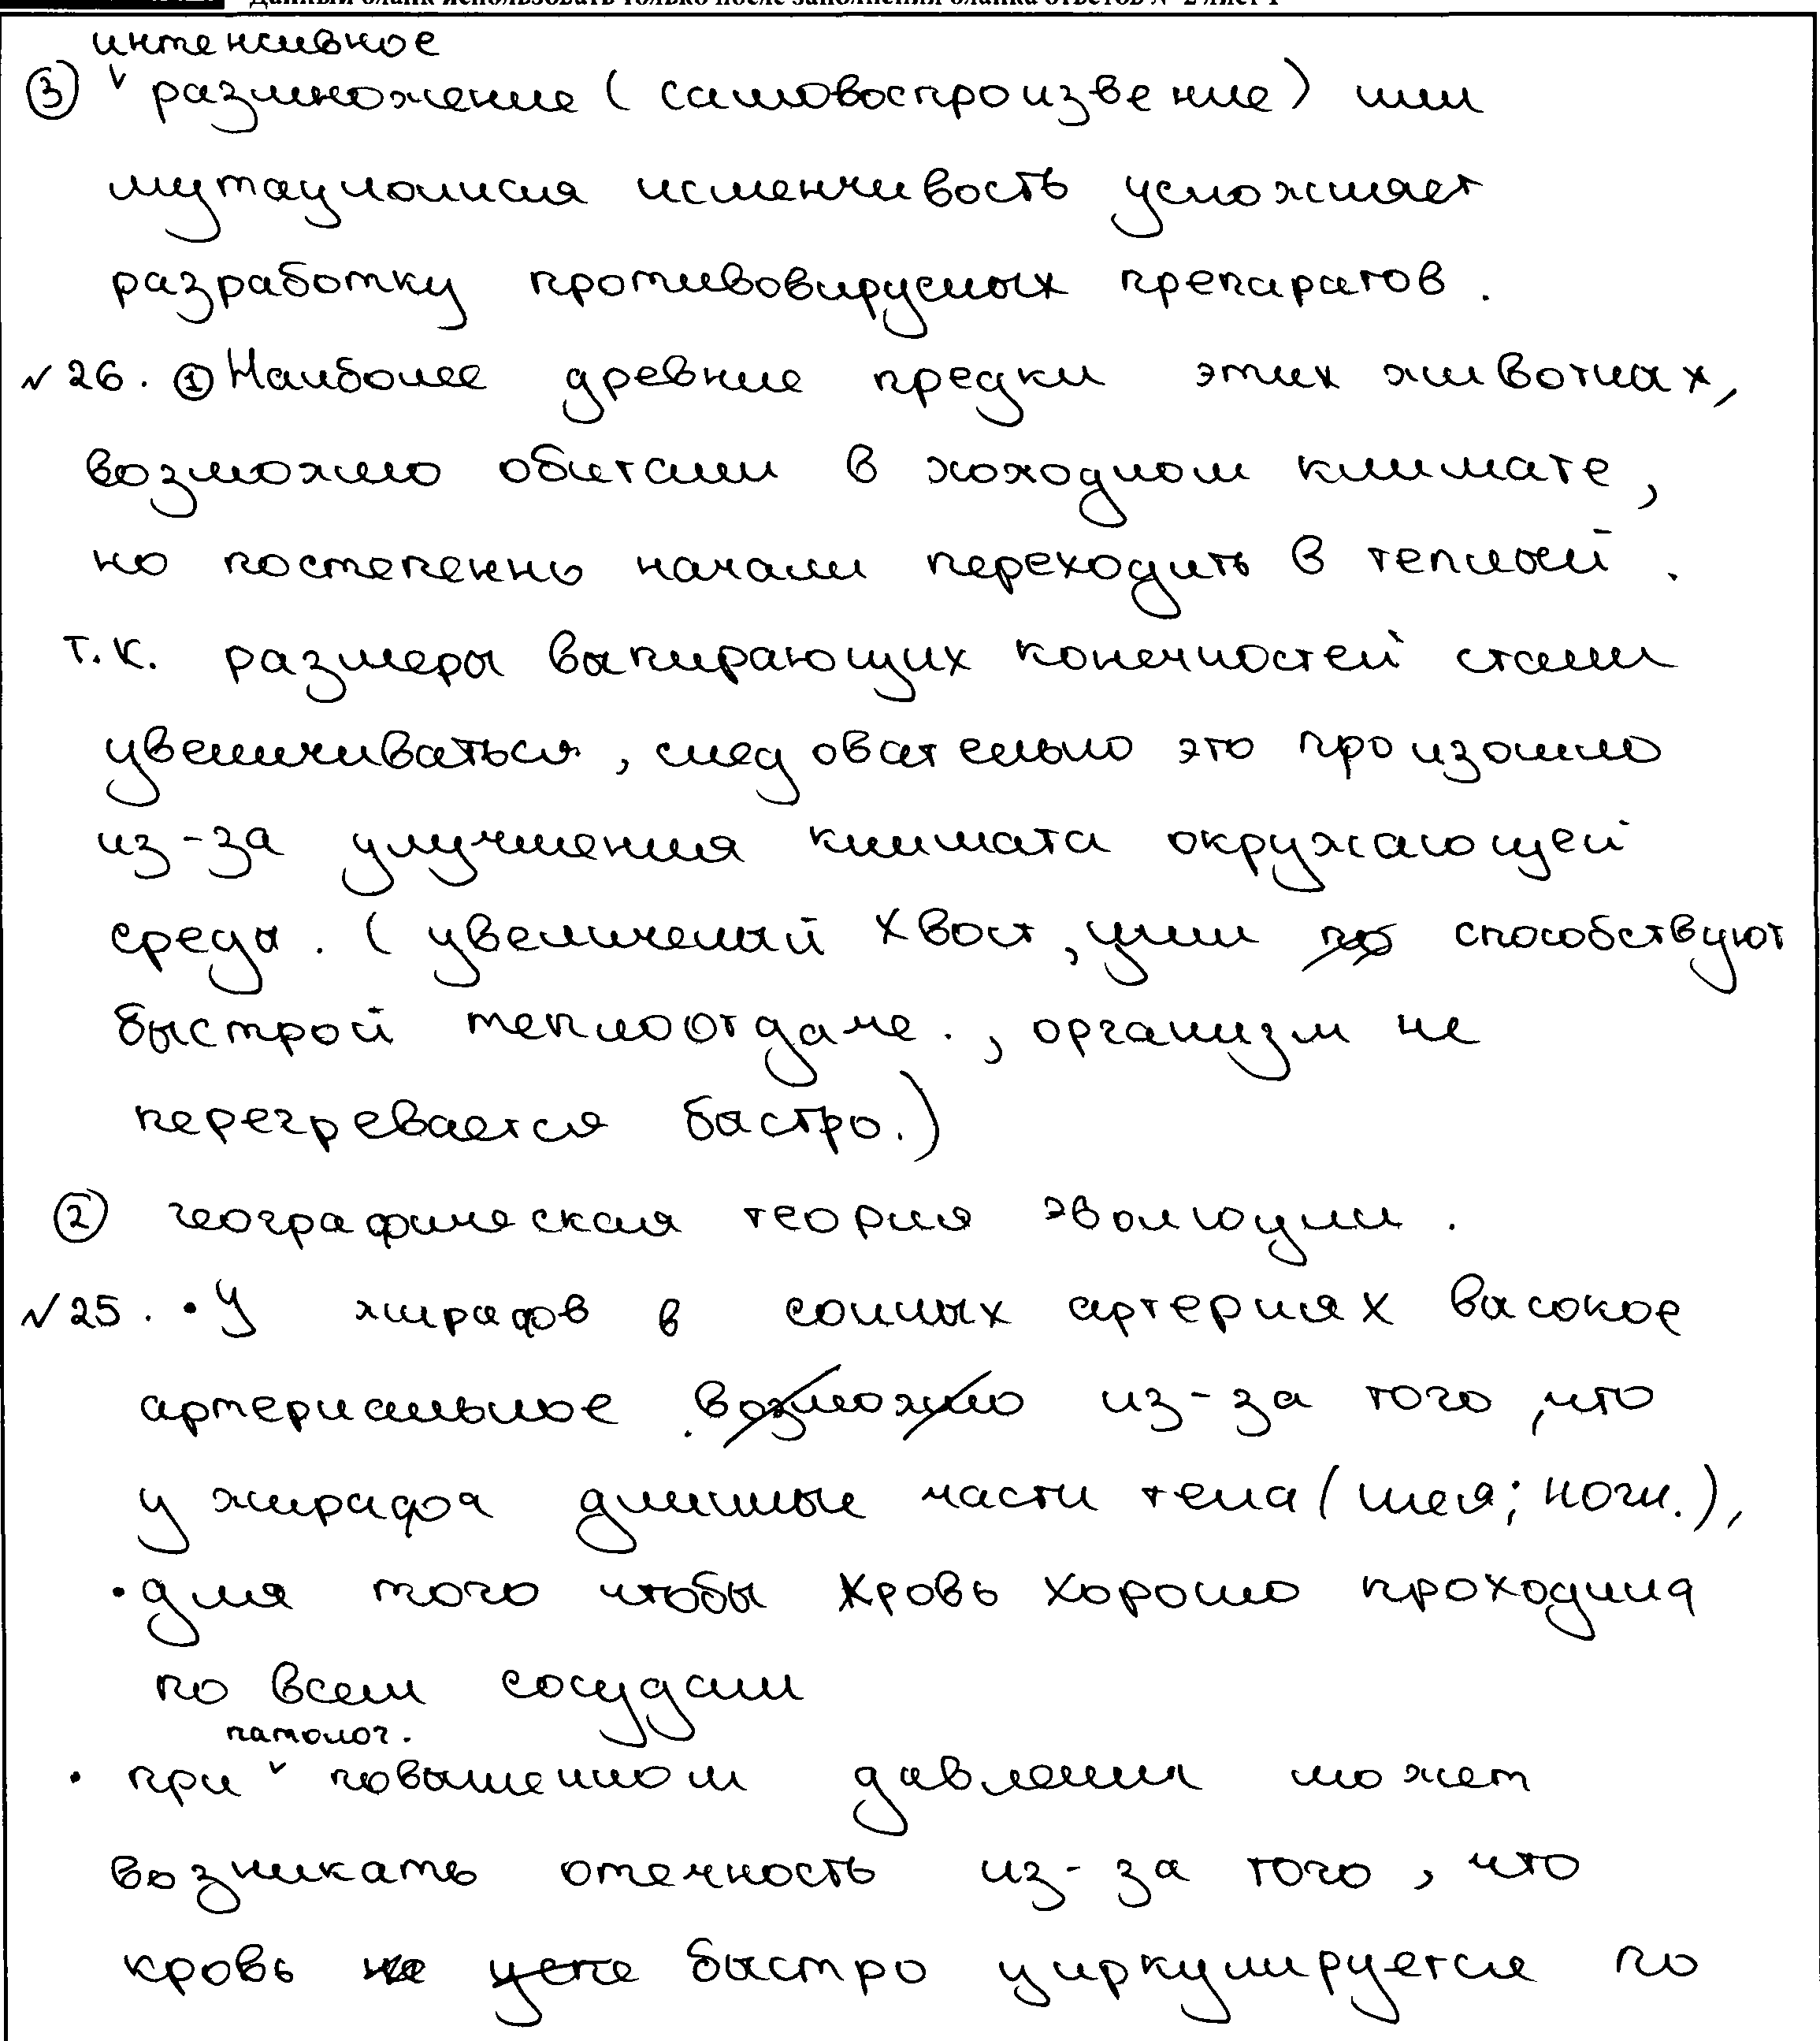 Данный бланк использовать только после заполнения бланка ответов № 2 лист 1
интенсивное
③ ˅ размножение ( самовоспроизвение) или
мутационная исменчивость усложняет
разработку противовирусных препаратов .
№ 26. ① Наиболее древние предки этих животных,
возможно обитали в холодном климате ,
но постепенно начали переходить в теплый .
т.к. размеры выпирающих конечностей стали
увеличиваться , следовательно это произошло
из-за улучшения климата окружающей
среды . ( увеличеный хвост , уши по способствуют
быстрой теплоотдаче . , организм не
перегревается быстро.)
② географическая теория эволюции .
№ 25. • У жирафов в сонных артериях высокое
артериальное . возможно из-за того ,что
у жирафа длинные части тела ( шея; ноги.),
• для того чтобы кровь хорошо проходила
по всем сосудам
патолог.
• при ˅ повышенном давлении может
возникать отечность из-за того , что
кровь не успе быстро циркулируется по